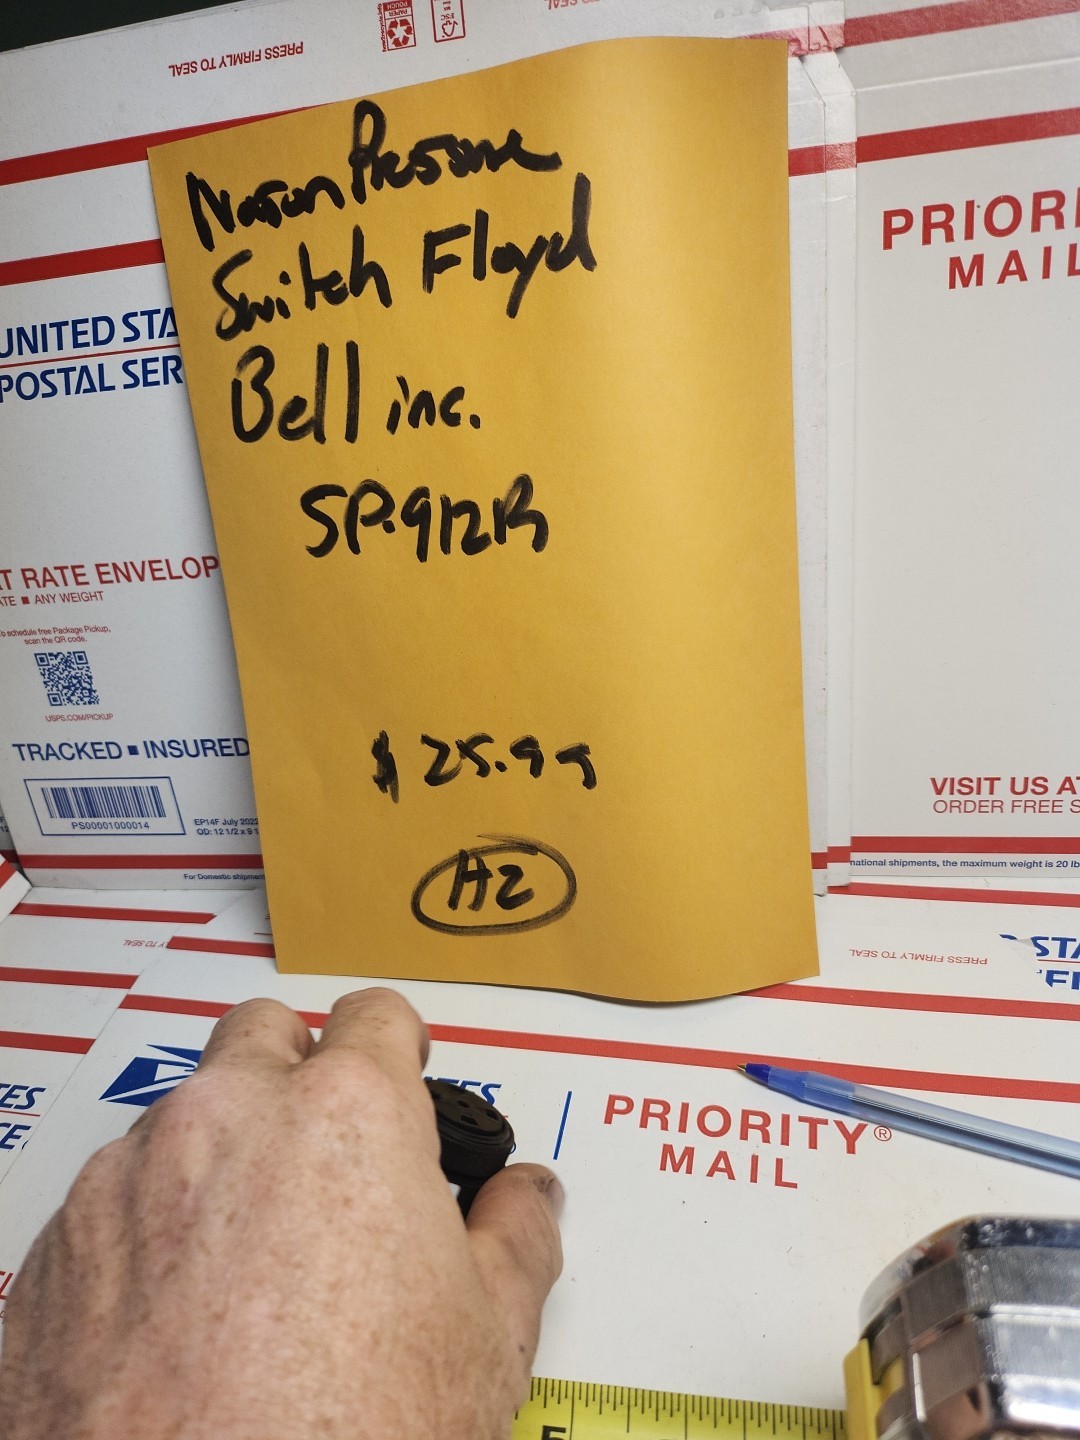 PRESS FIRMLY TO SEAL
PAPER
POUCH
Nason Pressure
Switch Floyd
Bell inc.
SP-912R
$25.99
H2
UNITED STA
POSTAL SER
T RATE ENVELOP
ATE ■ ANY WEIGHT
To schedule free Package Pickup,
scan the QR code.
USPS.COM/PICKUP
TRACKED ■ INSURED
PS00001000014
EP14F July 2022
OD: 12 1/2 x 9 1
For Domestic shipmen
PRIORI
MAIL
VISIT US AT
ORDER FREE S
national shipments, the maximum weight is 20 lb
Y TO SEAL
PRESS FIRMLY TO SEAL
STA
TES
PRIORITY®
MAIL
5